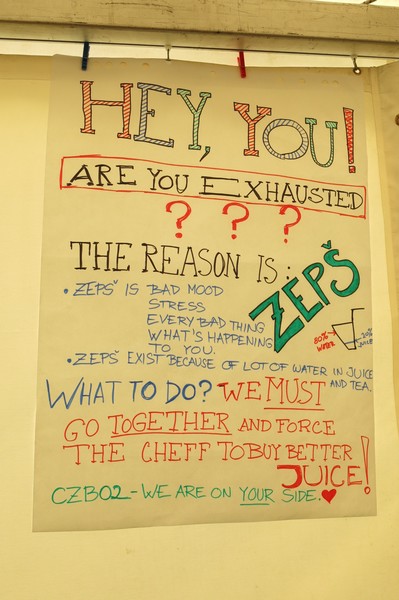 HEY, YOU!
ARE YOU EXHAUSTED
? ? ?
THE REASON IS:
ZEPŠ
• ZEPŠ IS BAD MOOD
STRESS
EVERY BAD THING
WHAT'S HAPPENING
TO YOU.
80% WATER
20% JUICE
• ZEPŠ EXIST BECAUSE OF LOT OF WATER IN JUICE
AND TEA.
WHAT TO DO? WE MUST
GO TOGETHER AND FORCE
THE CHEFF TO BUY BETTER
JUICE!
CZB02 - WE ARE ON YOUR SIDE. ♥